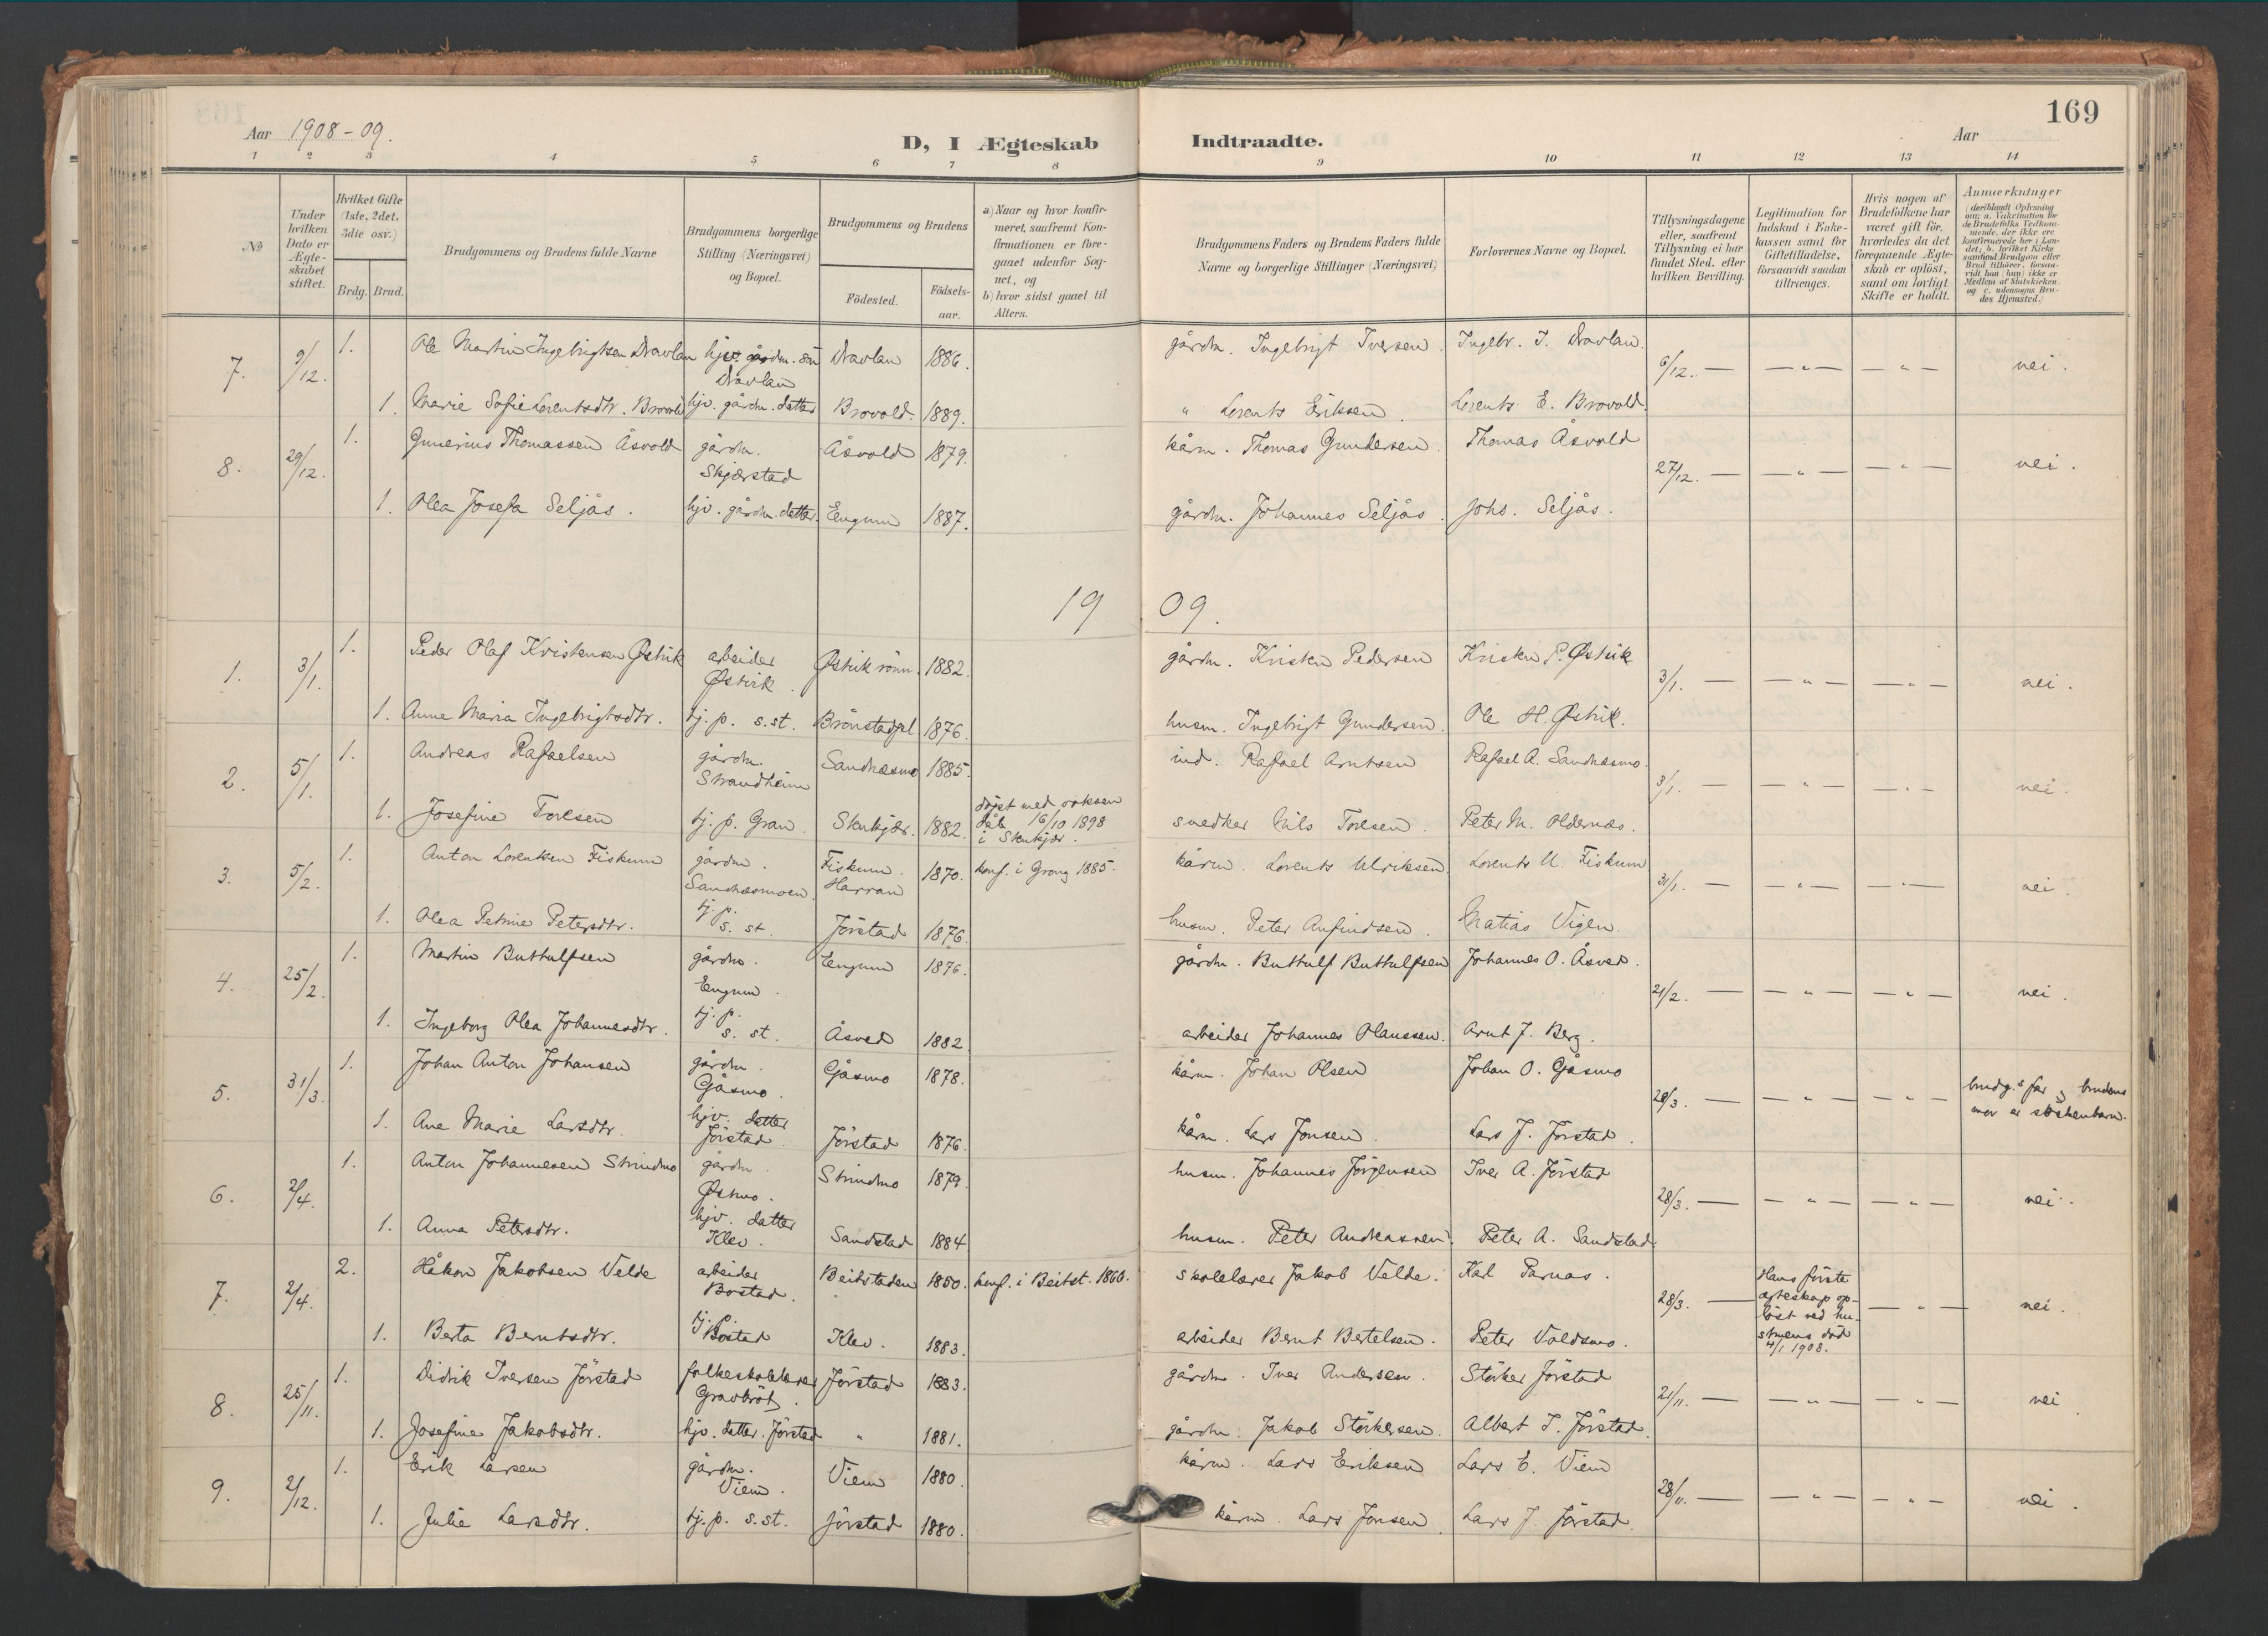 169
Aar 1908-09.
D, I Ægteskab Indtraadte.
Aar
1 2 3 4 5 6 7 8 9 10 11 12 13 14
No
Under hvilken Dato er Ægteskabet stiftet.
Hvilket Gifte (1ste, 2det, 3die osv.)
Brdg. Brud.
Brudgommens og Brudens fulde Navne
Brudgommens borgerlige Stilling (Næringsvei) og Bopæl.
Brudgommens og Brudens
Födested.
Födsels-aar.
a) Naar og hvor konfirmeret, saafremt Konfirmationen er foregaaet udenfor Sognet, og
b) hvor sidst gaaet til Alters.
Brudgommens Faders og Brudens Faders fulde Navne og borgerlige Stillinger (Næringsvei)
Forlovernes Navne og Bopæl.
Tillysningsdagene eller, saafremt Tillysning ei har fundet Sted, efter hvilken Bevilling.
Legitimation for Indskud i Enkekassen samt for Giftetilladelse, forsaavidt saadan tiltrænges.
Hvis nogen af Brudefolkene har været gift før, hvorledes da det foregaaende Ægteskab er oplöst, samt om lovligt Skifte er holdt.
Anmerkninger (deriblandt Oplysning om: a. Vakcination for de Brudefolks Vedkommende, der ikke ere konfirmerede her i Landet; b. hvilket Kirkesamfund Brudgom eller Brud tilhörer, forsaavidt han (hun) ikke er Medlem af Statskirken, og c. udensogns Brudes Hjemsted.)
7. 9/12. 1. Ole Martin Ingebrigtsen Dravlan hjv. gårdm. sön Dravlan Dravlan 1886. gårdm. Ingebrigt Iversen. Ingebr. I. Dravlan. 6/12. — — " — — " — nei.
1. Marie Sofie Lorentsdtr. Brovold hjv. gårdm. datter Brovold. 1889. " Lorents Eriksen. Lorents E. Brovold.
8. 29/12. 1. Gunerius Thomassen Åsvold gårdm. Skjærstad Åsvold 1879. kårm. Thomas Gundersen. Thomas Åsvold 27/12. — — " — — " — nei.
1. Olea Josefa Seljås. hjv. gårdm. datter. Eengum 1887. gårdm. Johannes Seljås. Johs. Seljås.
1909.
1. 3/1. 1. Peder Olaf Kristensen Østvik arbeider Østvik. Østvik rönn. 1882. gårdm. Kristen Pedersen Kristen P. Østvik 3/1. — — " — — " — nei.
1. Anne Maria Ingebrigtsdtr. tj. p. s. st. Brönstadpl 1876. husm. Ingebrigt Gundersen. Ole H. Østvik.
2. 5/1. 1. Andreas Rafaelsen gårdm. Strandheim Sandnæsmo 1885. ind. Rafael Arntsen Rafael A. Sandnæsmo. 3/1. — — " — — " — nei.
1. Josefine Torlsen tj. p. Gran. Stenkjær. 1882. döpt med voksen dåb 16/10 1898 i Stenkjær. snedker Nils Torlsen. Peter M. Oldernæs.
3. 5/2. 1. Anton Lorentsen Fiskum gårdm. Sandnæsmoen. Fiskum. Harran 1870. konf. i Grong 1885. kårm. Lorents Ulriksen. Lorents U. Fiskum 31/1. — — " — — " — nei.
1. Olea Petrine Petersdtr. tj. p. s. st. Jörstad 1876. husm. Peter Anfindsen. Matias Vigen.
4. 25/2. 1. Martin Buttulfsen gårdm. Eengum. Eengum 1876. gårdm. Buttulf Buttulfsen Johannes O. Åsved. 21/2. — — " — — " — nei.
1. Ingeborg Olea Johannesdtr. tj. p. s. st. Åsved 1882 arbeider Johannes Olaussen. Arnt J. Berg.
5. 31/3. 1. Johan Anton Johansen gårdm. Gåsmo. Gåsmo 1878. kårm. Johan Olsen Johan O. Gåsmo 28/3. — — " — — " — brudg.s far og brudens mor er söskenbarn.
1. Ane Marie Larsdtr. hjv. datter Jörstad. Jörstad 1876. kårm. Lars Jonsen. Lars J. Jörstad.
6. 2/4. 1. Anton Johannesen Strindmo gårdm. Østmo. Strindmo 1879. husm. Johannes Jörgensen Iver A. Jörstad 28/3. — — " — — " — nei.
1. Anna Petersdtr. hjv. datter Klev. Sandstad 1884 husm. Peter Andreassen. Peter A. Sandstad.
7. 2/4. 2. Håkon Jakobsen Velde arbeider Bostad. Beitstaden 1850. konf. i Beitst. 1866. skolelærer Jakob Velde. Karl Parnas. 28/3. — Hans förste ægteskap oplöst ved hustruens död 4/1 1908. — " — nei.
1. Berta Berntsdtr. tj. p. Bostad Klev. 1883. arbeider Bernt Bertelsen. Peter Voldsmo.
8. 25/11. 1. Didrik Iversen Jörstad folkeskolelærer Gravbröt. Jörstad 1883. gårdm. Iver Andersen. Störker Jörstad 21/11. — — " — — " — nei.
1. Josefine Jakobsdtr. hjv. datter. Jörstad " 1881. gårdm. Jakob Störkersen. Albert I. Jörstad.
9. 2/12. 1. Erik Larsen gårdm. Viem. Viem 1880. kårm. Lars Eriksen Lars E. Viem 28/11. — — " — — " — nei.
1. Julie Larsdtr. tj. p. s. st. Jörstad 1880. kårm. Lars Jonsen. Lars J. Jörstad.